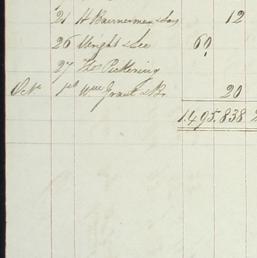 21 H Bannerman & Son 12
26 Wright & Lee 60
27 Thos Pickering
Octr 1st Wm Grant & Br 20
1.495.838 2